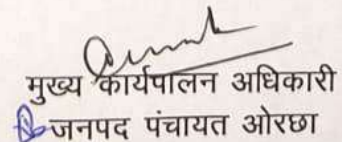 मुख्य कार्यपालन अधिकारी
जनपद पंचायत ओरछा